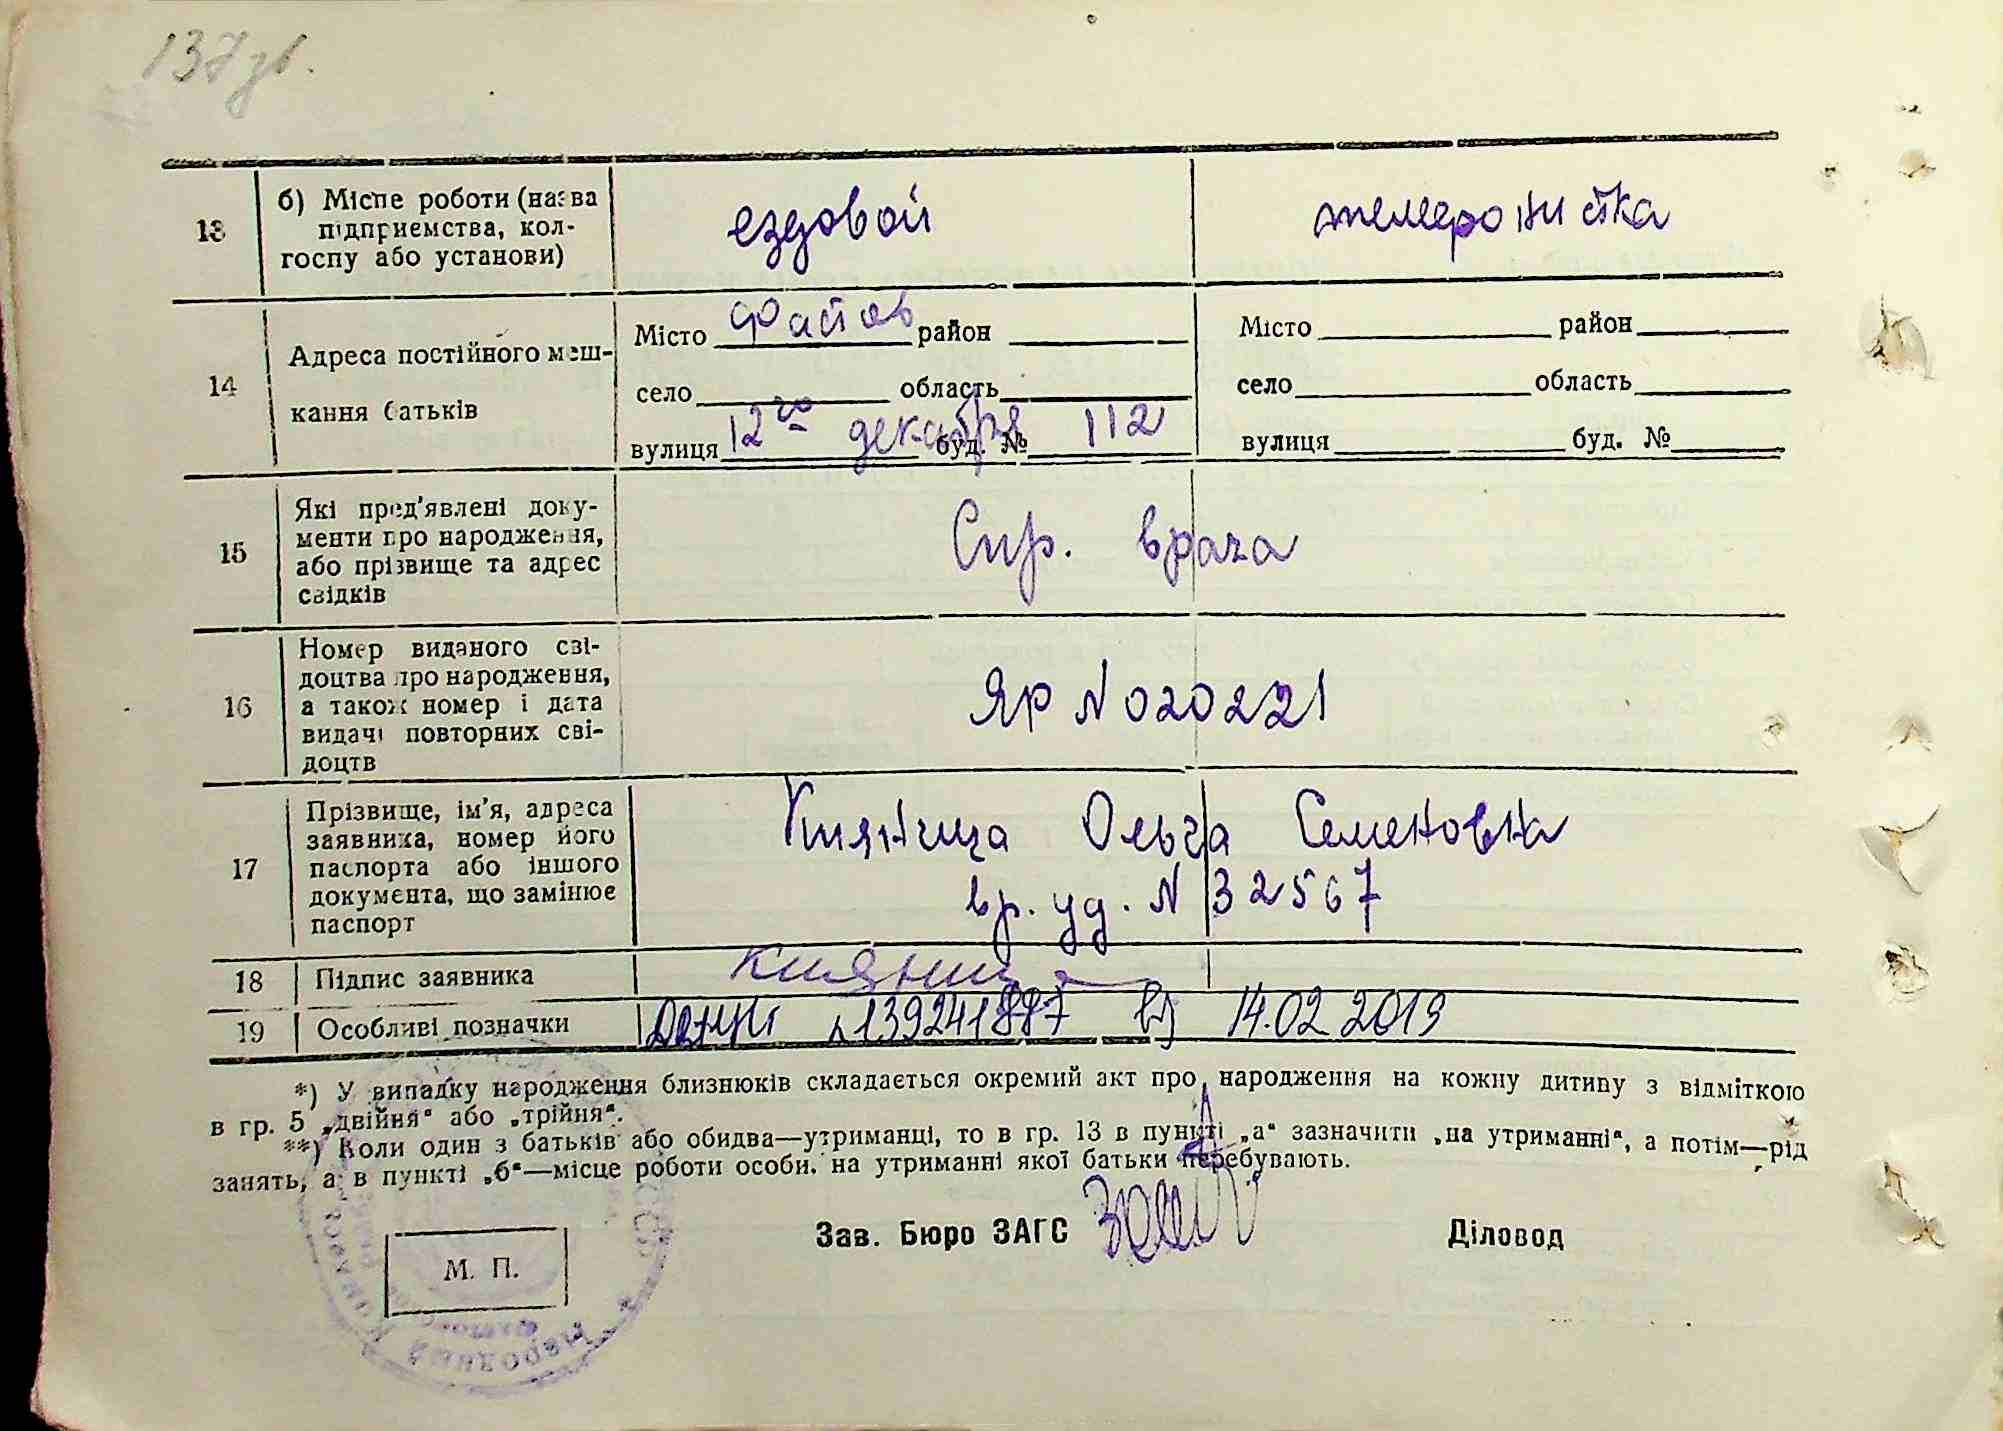 137 зв.
13
б) Місце роботи (назва
підприємства, кол-
госпу або установи)
ездовой
14
Адреса постійного меш-
кання батьків
Місто Фастов район
село область
вулиця 12го декабря буд. № 112
Місто район
село область
вулиця буд. №
15
Які пред'явлені доку-
менти про народження,
або прізвище та адрес
свідків
Спр. врача
16
Номер виданого сві-
доцтва про народження,
а також номер і дата
видачі повторних сві-
доцтв
ЯР N 020221
17
Прізвище, ім'я, адреса
заявника, номер його
паспорта або іншого
документа, що замінює
паспорт
Кияница Ольга Семеновна
вр. уд. N 32567
18
Підпис заявника
Кияница
19
Особливі позначки
N 139241887 від 14.02.2019
*) У випадку народження близнюків складається окремий акт про народження на кожну дитину з відміткою
в гр. 5 „двійня“ або „трійня“.
**) Коли один з батьків або обидва—утриманці, то в гр. 13 в пункті „а“ зазначити „на утриманні“, а потім—рід
занять, а в пункті „б“—місце роботи особи, на утриманні якої батьки перебувають.
Зав. Бюро ЗАГС
Діловод
М. П.